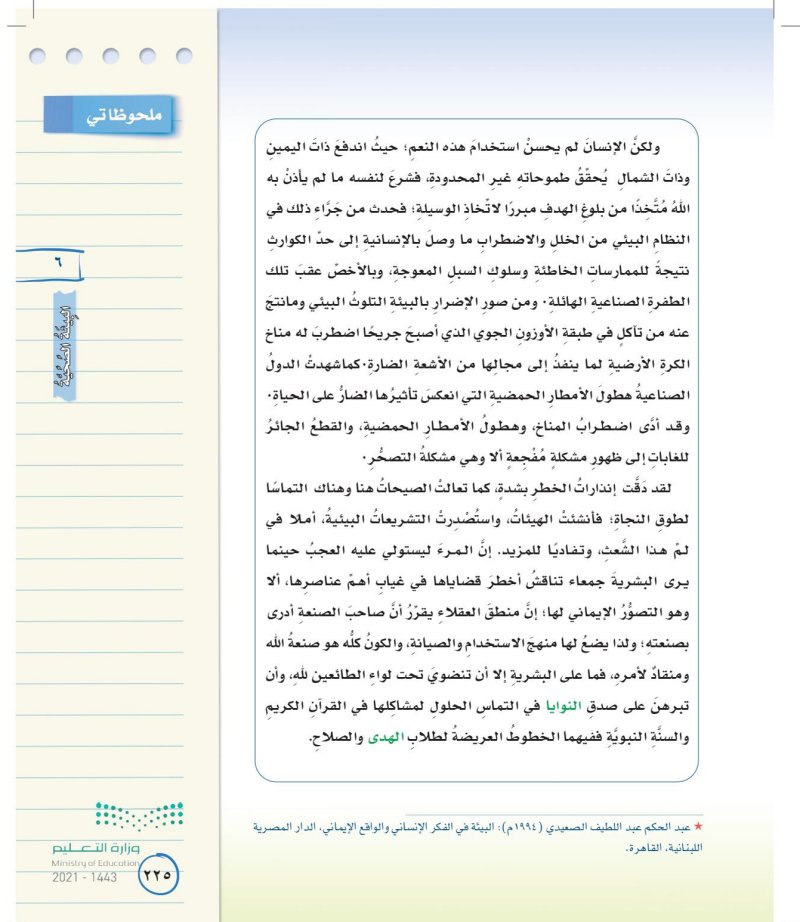 ملحوظاتي
ولكنَّ الإنسانَ لم يحسنْ استخدامَ هذه النعمِ؛ حيثُ اندفعَ ذاتَ اليمينِ
وذاتَ الشمالِ يُحقّقُ طموحاتهِ غيرِ المحدودةِ، فشرعَ لنفسه ما لم يأذنْ به
اللهُ مُتَّخِذًا من بلوغِ الهدفِ مبررًا لاتّخاذِ الوسيلةِ؛ فحدث من جَرَّاءِ ذلك في
النظامِ البيئي من الخللِ والاضطرابِ ما وصلَ بالإنسانيةِ إلى حدّ الكوارثِ
نتيجةً للممارساتِ الخاطئةِ وسلوكِ السبلِ المعوجةِ، وبالأخصّ عقبَ تلك
الطفرةِ الصناعيةِ الهائلةِ. ومن صورِ الإضرارِ بالبيئةِ التلوثُ البيئي ومانتجَ
عنه من تآكلٍ في طبقةِ الأوزونِ الجوي الذي أصبحَ جريحًا اضطربَ له مناخ
الكرةِ الأرضيةِ لما ينفذُ إلى مجالها من الأشعةِ الضارةِ.كماشهدتْ الدولُ
الصناعيةُ هطولَ الأمطارِ الحمضيةِ التي انعكسَ تأثيرُها الضارُّ على الحياةِ.
وقد أدَّى اضطرابُ المناخِ، وهطولُ الأمطارِ الحمضيةِ، والقطعُ الجائرُ
للغاباتِ إلى ظهورِ مشكلةٍ مُفْجِعةٍ ألا وهي مشكلةُ التصحُّرِ.
لقد دَقَّت إنذاراتُ الخطرِ بشدةٍ، كما تعالتْ الصيحاتُ هنا وهناك التماسًا
لطوقِ النجاةِ؛ فأنشئتْ الهيئاتُ، واستُصْدِرتْ التشريعاتُ البيئيةُ، أملا في
لمّ هذا الشَّعثِ، وتفاديًا للمزيد. إنَّ المرءَ ليستولي عليه العجبُ حينما
يرى البشريةَ جمعاء تناقشُ أخطرَ قضاياها في غيابِ أهمّ عناصرِها، ألا
وهو التصوُّرُ الإيماني لها؛ إنَّ منطقَ العقلاءِ يقرّرُ أنَّ صاحبَ الصنعةِ أدرى
بصنعتهِ؛ ولذا يضعُ لها منهجَ الاستخدامِ والصيانةِ، والكونُ كلُّه هو صنعةُ الله
ومنقادٌ لأمرهِ، فما على البشريةِ إلا أن تنضويَ تحت لواءِ الطائعين للهِ، وأن
تبرهنَ على صدقِ النوايا في التماسِ الحلولِ لمشاكلِها في القرآنِ الكريمِ
والسنَّةِ النبويَّةِ ففيهما الخطوطُ العريضةُ لطلابِ الهدى والصلاحِ.
٦
البيئة الصحية
★ عبد الحكم عبد اللطيف الصعيدي (١٩٩٤م): البيئة في الفكر الإنساني والواقع الإيماني، الدار المصرية
اللبنانية، القاهرة.
وزارة التعليم
Ministry of Education
2021 - 1443
٢٢٥